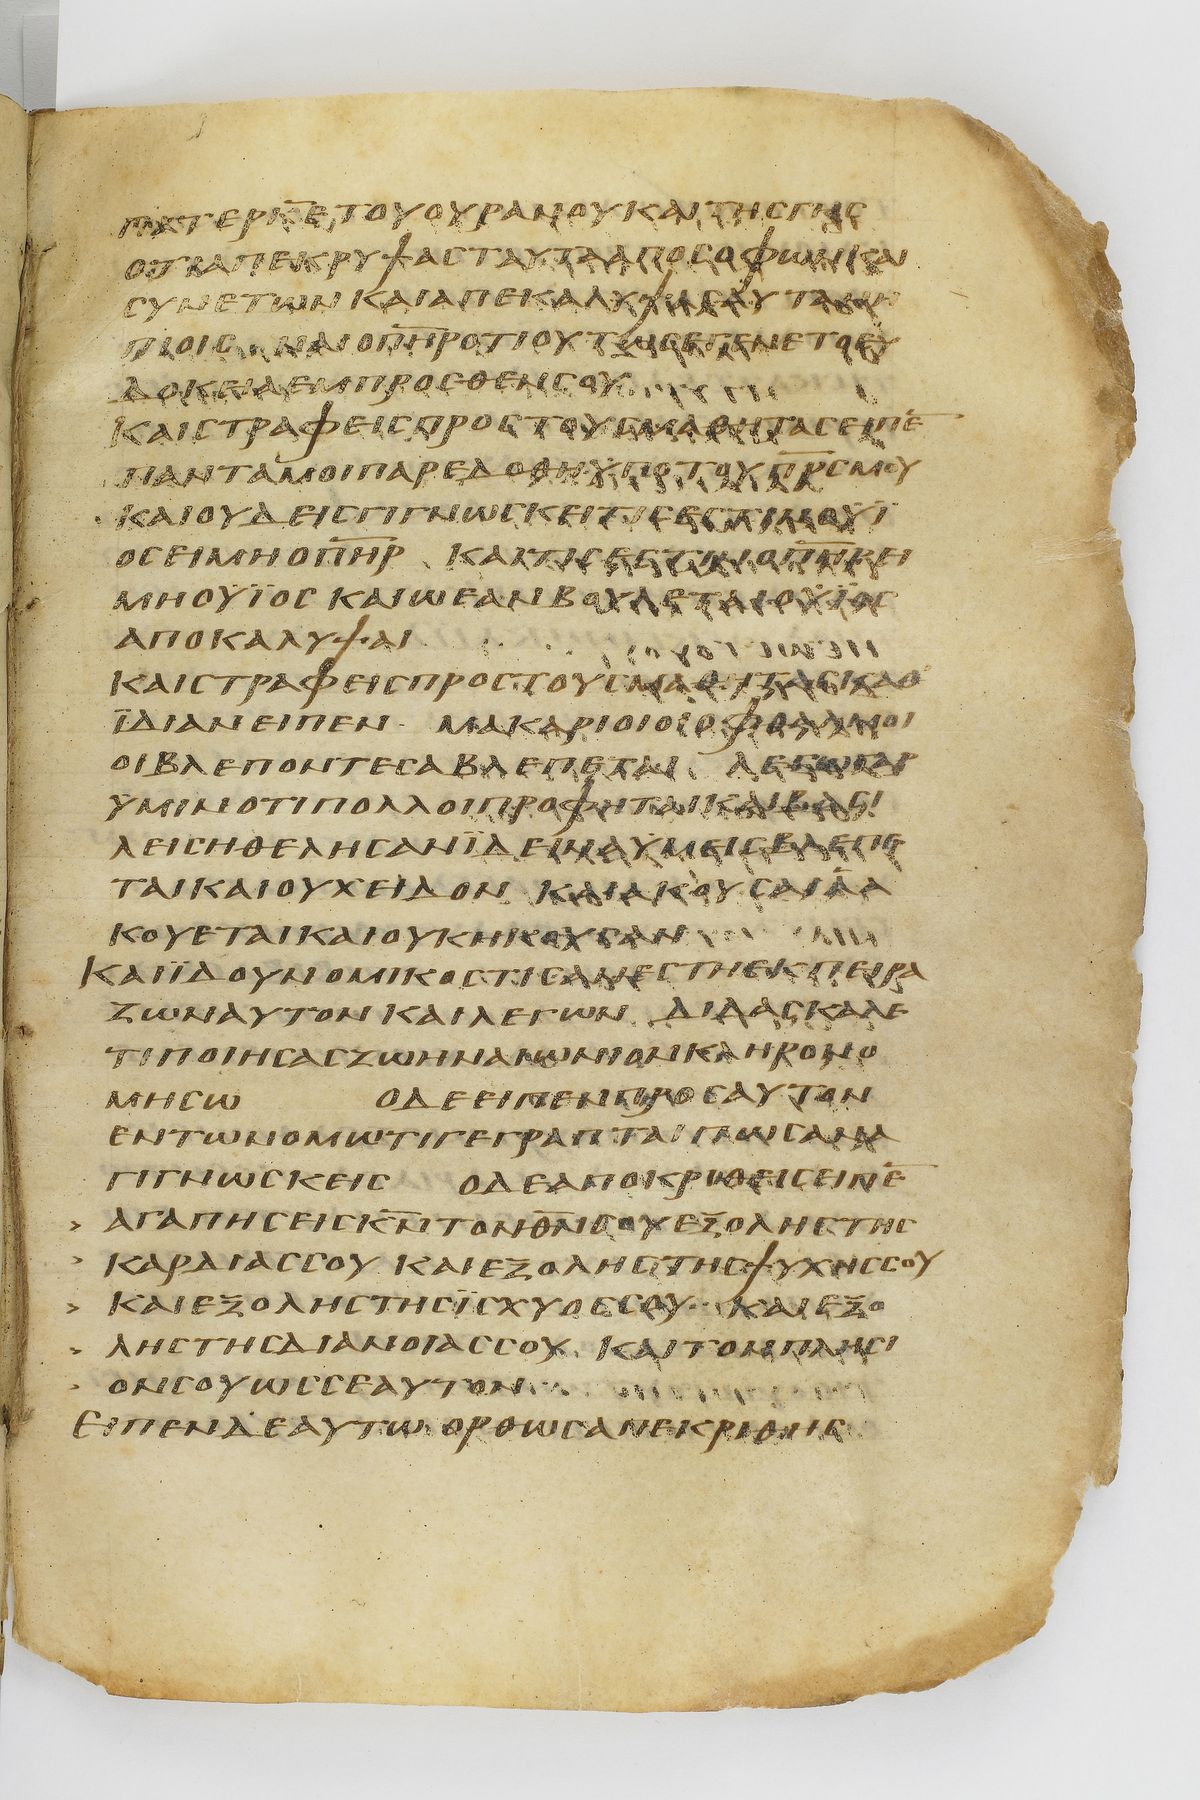 πατερ κ̅ε̅ του ουρανου και της γης
οτι απεκρυψας ταυτα απο σοφων και
συνετων και απεκαλυψας αυτα νη
πιοις ναι ο π̅η̅ρ οτι ουτως εγενετο ευ
δοκια εμπροσθεν σου
και στραφεις προς τους μαθητας ειπε̅
παντα μοι παρεδοθη ϋπο του π̅ρ̅ς̅ μου
και ουδεις γιγνωσκει τις εστιν ο ϋϊ
ος ει μη ο π̅η̅ρ και τις εστιν ο π̅η̅ρ ει
μη ο ϋϊος και ω εαν βουλεται ο ϋϊος
αποκαλυψαι
και στραφεις προς τους μαθητας κατ
ϊδιαν ειπεν μακαριοι οι οφθαλμοι
οι βλεποντες α βλεπεται λεγω γαρ
ϋμιν οτι πολλοι προφηται και βασι
λεις ηθελησαν ϊδειν α ϋμεις βλεπε
ται και ουχ ειδον και ακουσαι α α
κουεται και ουκ ηκουσαν
και ϊδου νομικος τις ανεστη εκπειρα
ζων αυτον και λεγων διδασκαλε
τι ποιησας ζωην αιωνιον κληρονο
μησω ο δε ειπεν προς αυτον
εν τω νομω τι γεγραπται πως ανα
γιγνωσκεις ο δε αποκριθεις ειπε̅
> αγαπησεις κ̅ν̅ τον θ̅ν̅ σου εξ ολης της
> καρδιας σου και εξ ολης της ψυχης σου
> και εξ ολης της ϊσχυος σου και εξ ο
> λης της διανοιας σου και τον πλησι
> ον σου ως σεαυτον
ειπεν δε αυτω ορθως απεκριθης